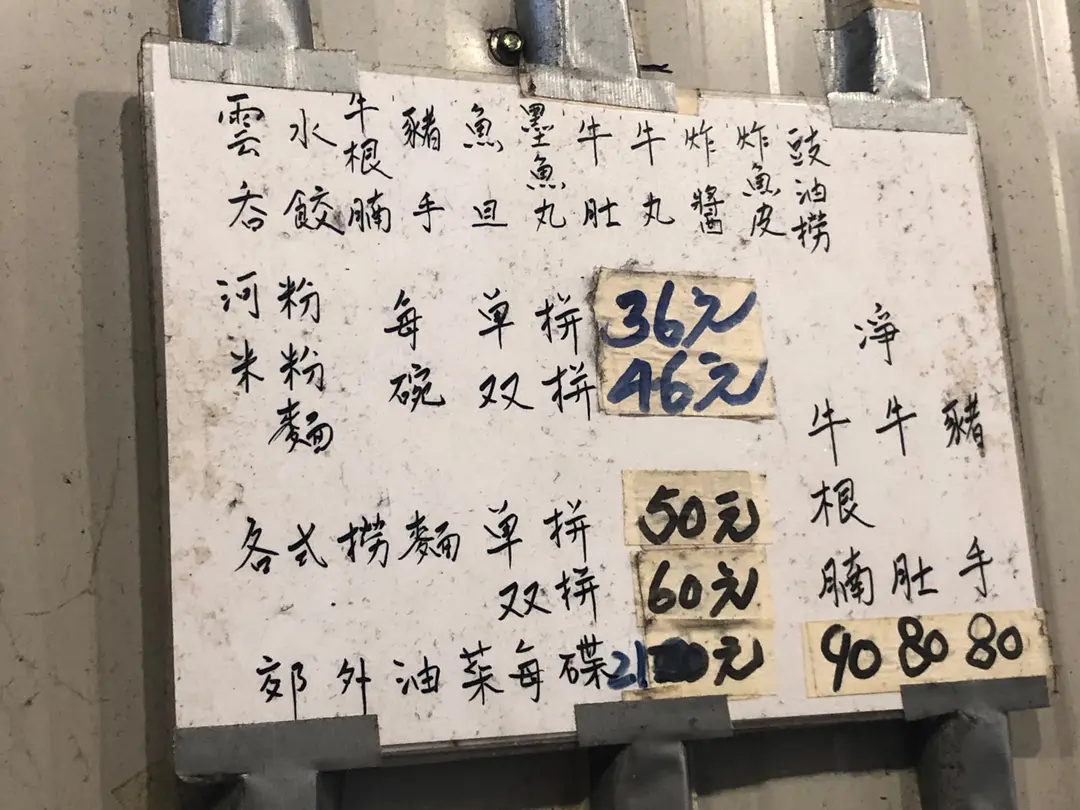 雲吞
水餃
牛根腩
豬手
魚旦
墨魚丸
牛肚
牛丸
炸醬
炸魚皮
豉油撈
河粉
米粉
麵
每碗
单拼 36元
双拼 46元
各式撈麵 单拼 50元
双拼 60元
郊外油菜每碟 元
淨
牛根腩 90
牛肚 80
豬手 80